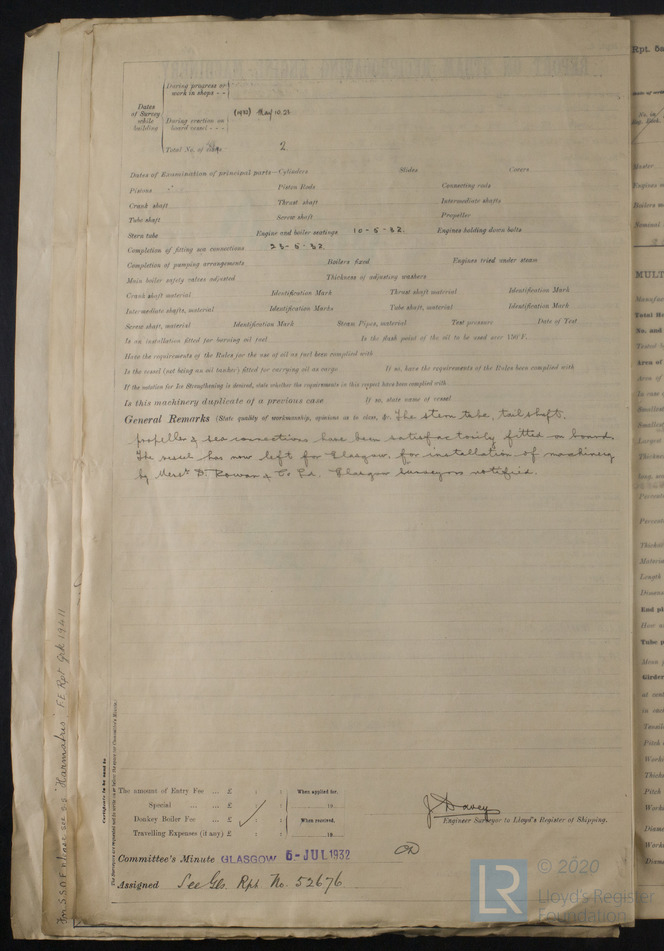 During progress of work in shops - -
Dates of Survey while building
During erection on board vessel - - -
(1932) May 10. 23
Total No. of visits
2.
Dates of Examination of principal parts—Cylinders Slides Covers
Pistons Piston Rods Connecting rods
Crank shaft Thrust shaft Intermediate shafts
Tube shaft Screw shaft Propeller
Stern tube Engine and boiler seatings 10-5-32. Engines holding down bolts
Completion of fitting sea connections 23-5-32
Completion of pumping arrangements Boilers fixed Engines tried under steam
Main boiler safety valves adjusted Thickness of adjusting washers
Crank shaft material Identification Mark Thrust shaft material Identification Mark
Intermediate shafts, material Identification Marks Tube shaft, material Identification Mark
Screw shaft, material Identification Mark Steam Pipes, material Test pressure Date of Test
Is an installation fitted for burning oil fuel Is the flash point of the oil to be used over 150°F.
Have the requirements of the Rules for the use of oil as fuel been complied with
Is the vessel (not being an oil tanker) fitted for carrying oil as cargo If so, have the requirements of the Rules been complied with
If the notation for Ice Strengthening is desired, state whether the requirements in this respect have been complied with
Is this machinery duplicate of a previous case If so, state name of vessel
General Remarks (State quality of workmanship, opinions as to class, &c. The stern tube, tail shaft,
propeller & sea connections have been satisfactorily fitted on board.
The vessel has now left for Glasgow, for installation of machinery
by Messrs D. Rowan & Co Ld. Glasgow Surveyors notified.
The amount of Entry Fee ... £ : : When applied for,
Special ... ... £ : : 19
Donkey Boiler Fee ... £ : : When received,
Travelling Expenses (if any) £ : : 19
J Davey
Engineer Surveyor to Lloyd's Register of Shipping.
Committee's Minute GLASGOW 5-JUL 1932
Assigned See Gls. Rpt. No. 52676
Certificate to be sent to
Rpt. 5a
MULT
LR
© 2020
Lloyd's Register
Foundation